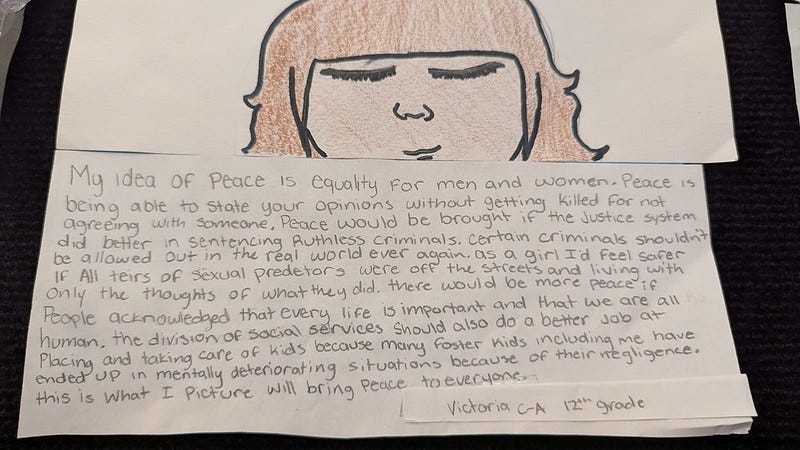 My idea of Peace is equality for men and women. Peace is
being able to state your opinions without getting killed for not
agreeing with someone. Peace would be brought if the Justice system
did better in sentencing Ruthless criminals. certain criminals shouldn't
be allowed out in the real world ever again. as a girl I'd feel safer
If All teirs of sexual predetors were off the streets and living with
only the thoughts of what they did. there would be more peace if
People acknowledged that every life is important and that we are all
human. the division of social services should also do a better job at
Placing and taking care of kids because many foster kids including me have
ended up in mentally deteriorating situations because of their negligence.
this is what I Picture will bring Peace to everyone.
Victoria C-A 12th grade